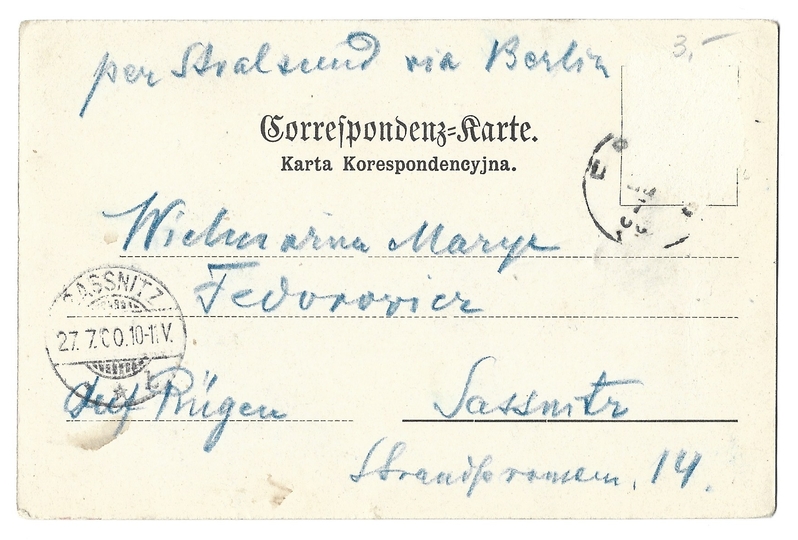 per Stralsund via Berlin
3,–
Correspondenz=Karte.
Karta Korespondencyjna.
Wielmożna Marya
Fedorowicz
SASSNITZ
27. 7. 00. 10-11 V.
auf Rügen
Sassnitz
Strandpromen. 14.